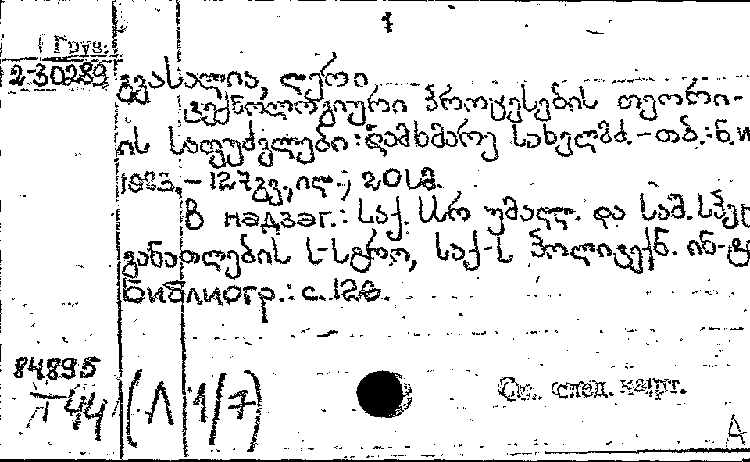 1
Груз.
2-30289
გვასალია, ლერი
ტექნოლოგიური პროცესების თეორი-
ის საფუძვლები: დამხმარე სახელმძ. - თბ.: Б.и
1983. - 127გვ., ილ.; 20სმ.
В надзаг.: საქ. სსრ უმაღლ. და საშ. სპეც
განათლების ს-სტრო, საქ-ს პოლიტექნ. ინ-ტ
Библиогр.: с. 126.
84895
Т 44 (Л 1/7)
См. след. карт.
А